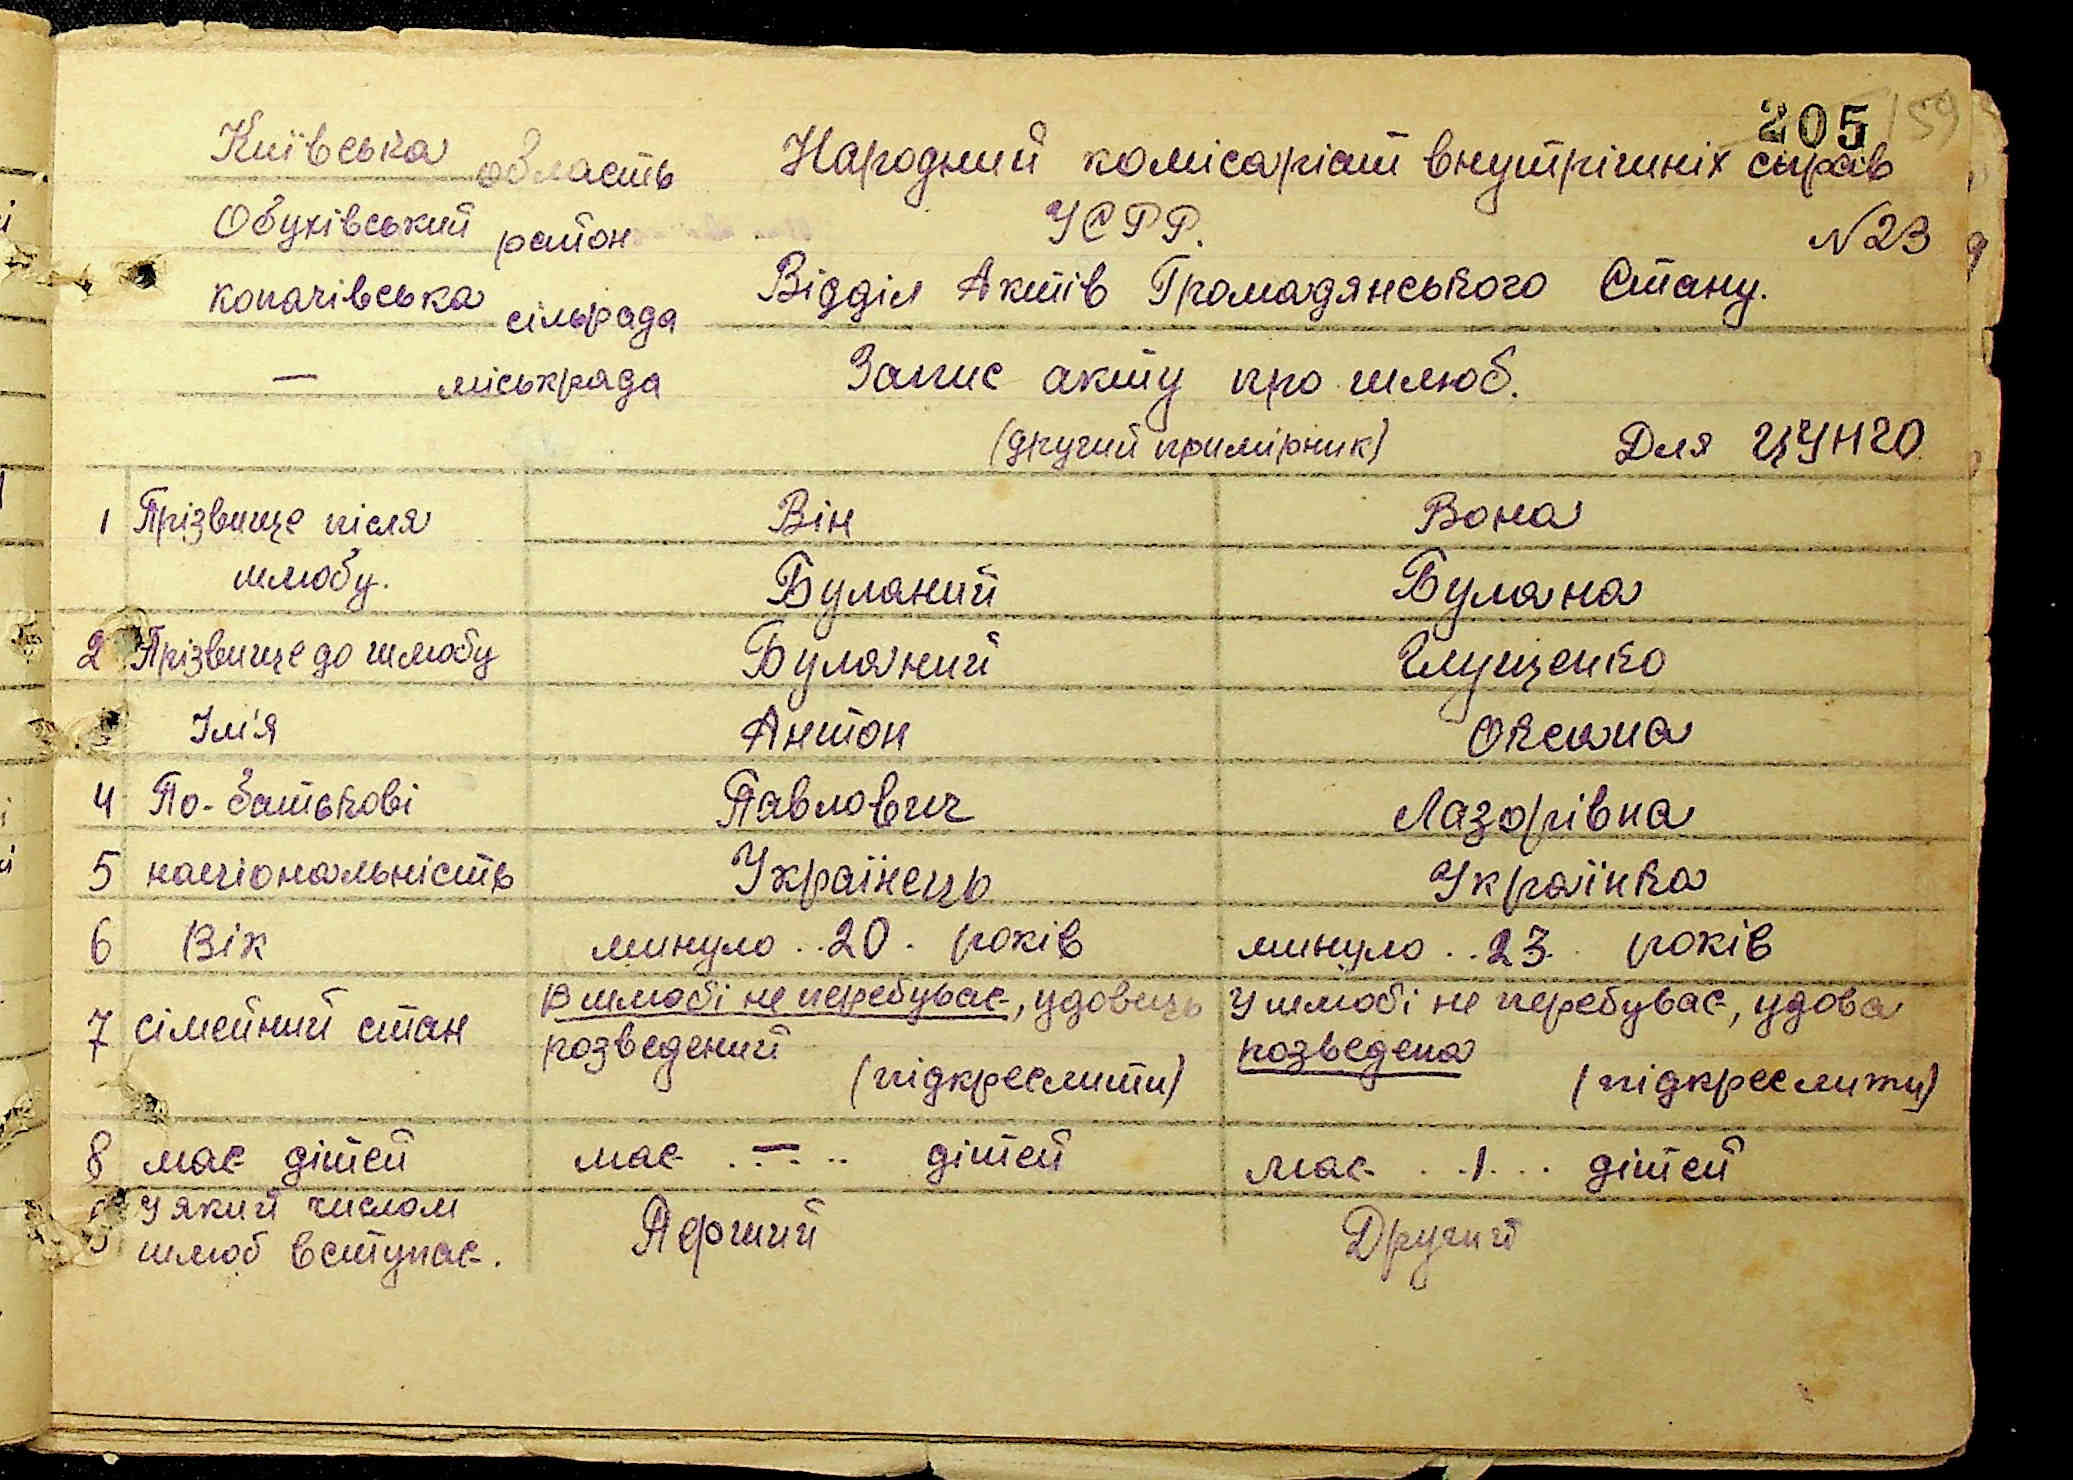 205
159
Київська область
Народний комісаріат внутрішніх справ
Обухівський район
УСРР.
№ 23
Копачівська сільрада
Відділ Актів Громадянського Стану.
— міськрада
Запис акту про шлюб.
(другий примірник)
Для ЦУНГО
1 Прізвище після шлюбу.
Він
Вона
Буланий
Булана
2 Прізвище до шлюбу
Буланий
Глущенко
Ім'я
Антон
Оксана
4 По-батькові
Павлович
Лазорівна
5 національність
Українець
Українка
6 Вік
минуло . . 20 . років
минуло . . 23 . . років
7 сімейний стан
В шлюбі не перебуває, удовець
розведений
(підкреслити)
У шлюбі не перебуває, удова
розведена
(підкреслити)
8 має дітей
має . . — . . дітей
має . . 1 . . . дітей
9 У який числом
шлюб вступає.
Перший
Другий